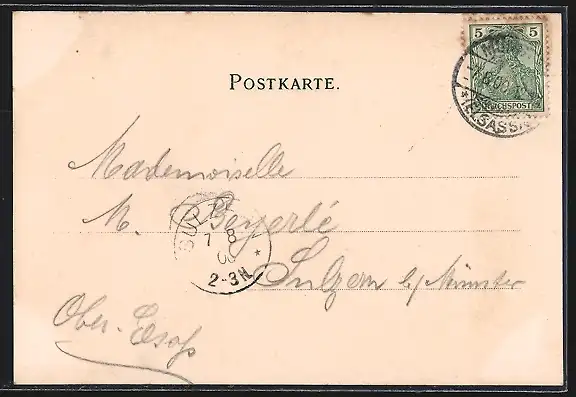 5 5
REICHSPOST
(ELSASS)
POSTKARTE.
Mademoiselle
M. Beyerlé
SUL
7 8
00
2-3N
Sulzern b/ Münster
Ober-Elsaß